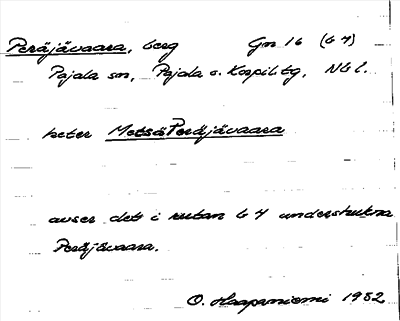 Peräjävaara, berg Gm 16 (64)
Pajala sn, Pajala o. Korpil. tg, Nbl.
heter MetsäPeräjävaara
avser det i rutan 64 understrukna
Peräjävaara.
O. Haapaniemi 1952